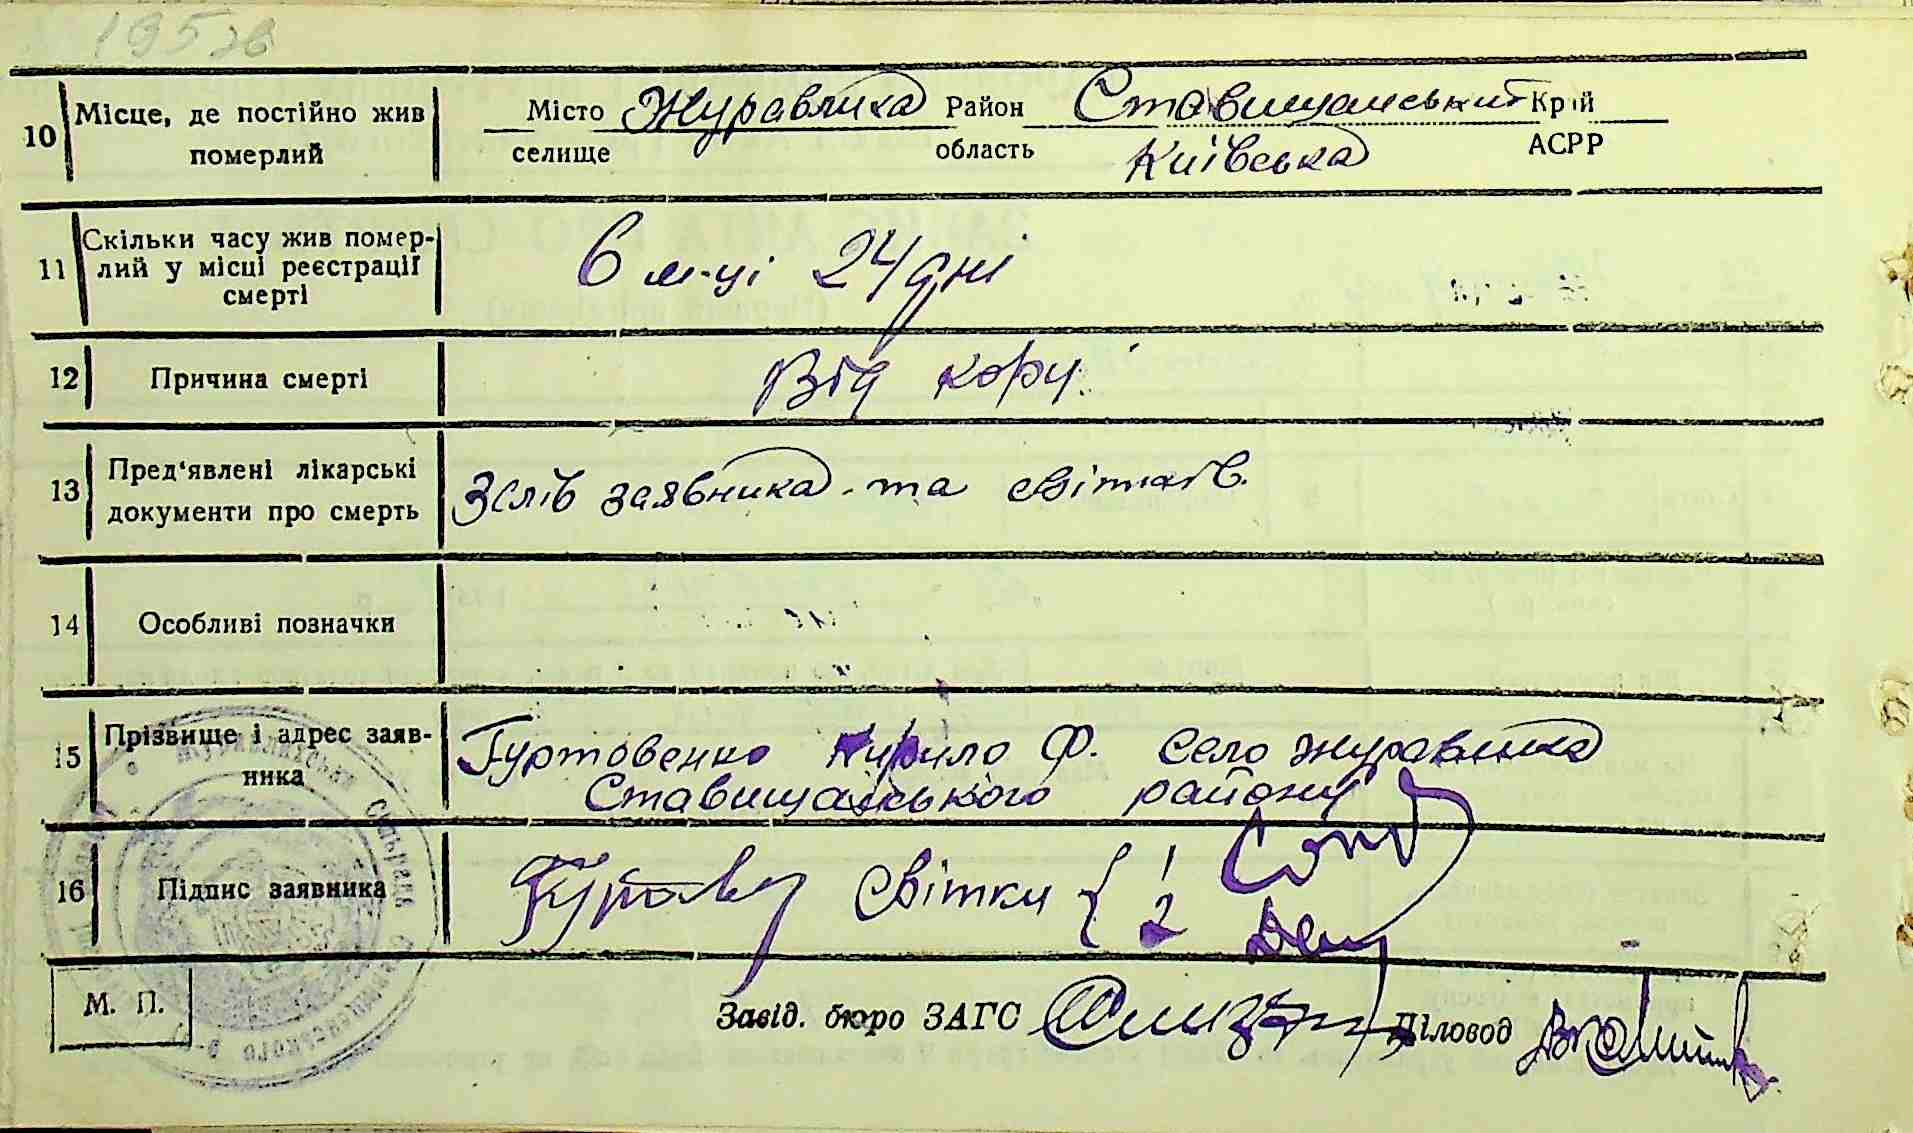 195зв
10 Місце, де постійно жив Місто Журавлиха Район Ставищанський Край
померлий селище область Київська АСРР
11 Скільки часу жив помер-
лий у місці реєстрації 6 м-ці 24 дні
смерті
12 Причина смерті Від кору.
13 Пред'явлені лікарські Зслів заявника та свідків.
документи про смерть
14 Особливі позначки
15 Прізвище і адрес заяв- Гуртовенко Кирило Ф. село Журавлиха
ника Ставищанського району
16 Підпис заявника світки { 1
2
М. П. Завід. бюро ЗАГС Діловод